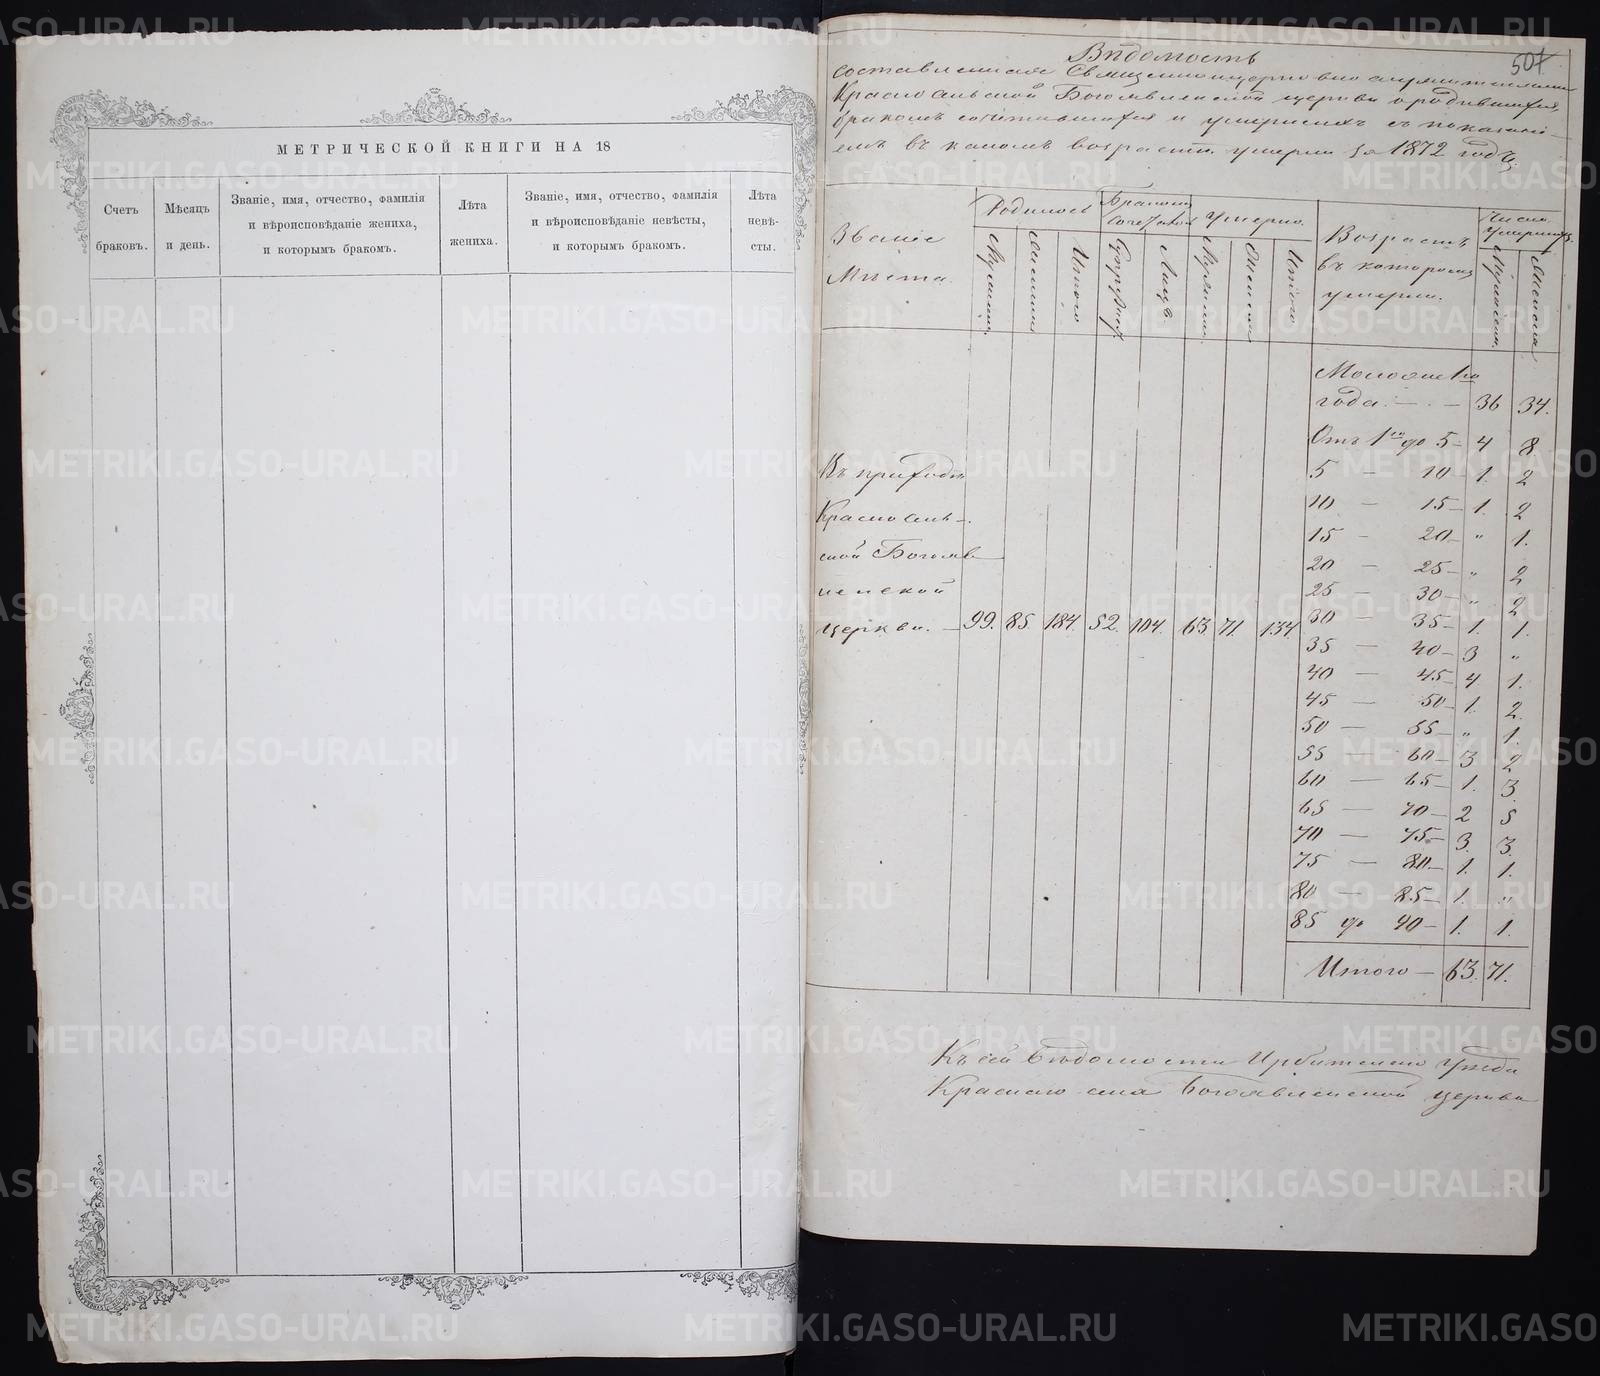 МЕТРИЧЕСКОЙ КНИГИ НА 18
Счетъ браковъ.
Мѣсяцъ и день.
Званіе, имя, отчество, фамилія
и вѣроисповѣданіе жениха,
и которымъ бракомъ.
Лѣта жениха.
Званіе, имя, отчество, фамилія
и вѣроисповѣданіе невѣсты,
и которымъ бракомъ.
Лѣта невѣ-
сты.
507
Вѣдомость
составленная Священноцерковнослужителями
Красносельской Богоявленской церкви о родившихся,
бракомъ сочетавшихся и умершихъ съ показані-
емъ въ какомъ возрастѣ умерли за 1872 годъ
Званіе
Мѣста.
Родилось
Мужеска
Женска
Итого
Бракомъ
сочетал
Лицъ
Умерло.
Мужеска
Женска
Итого
Возрастъ
въ которомъ
умерли.
Число
умершихъ.
Мужеска.
Женска
Моложе 1го
года. — 36 34.
Отъ 1го до 5 — 4 8
5 — 10 — 1. 2
10 — 15 — 1. 2
15 — 20 — " 1.
20 — 25 — " 2
25 — 30 — " 2
30 — 35 — 1. 1.
35 — 40 — 3 "
40 — 45 — 4 1.
45 — 50 — 1. 2.
50 — 55 — " 1.
55 — 60 — 3 2
60 — 65 — 1. 3.
65 — 70 — 2 5
70 — 75 — 3. 3.
75 — 80 — 1. 1.
80 — 85 — 1. "
85 до 90 — 1. 1.
Итого — 63. 71.
Въ приходѣ
Красносель-
ской Богояв
ленской
церкви. — 99. 85. 184. 52. 104. 63 71. 134
Къ сей вѣдомости Ирбитскаго уѣзда
Краснаго села Богоявленской церкви
METRIKI.GASO-URAL.RU